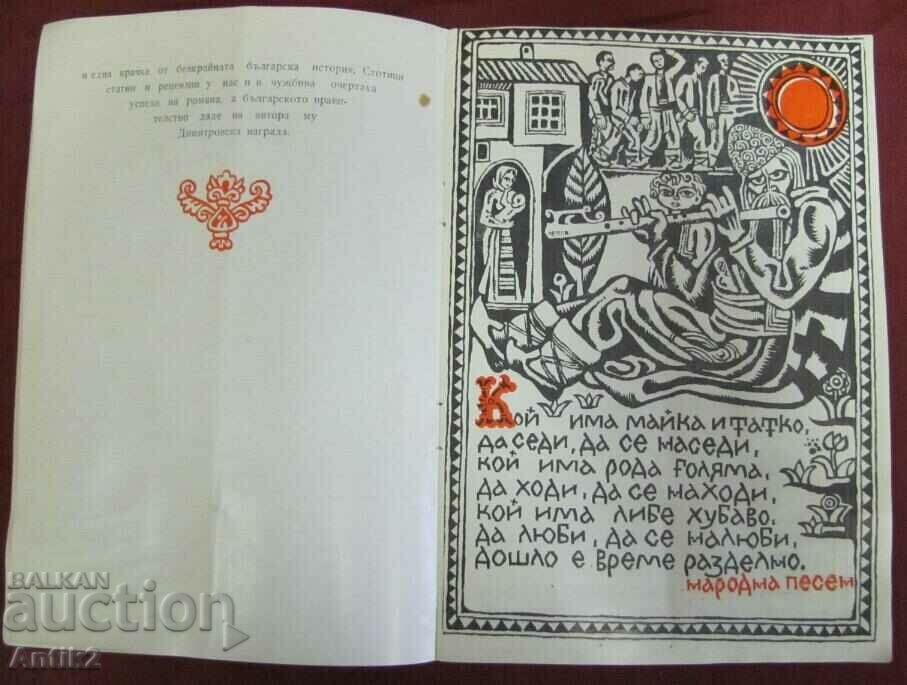 и една крачка от безкрайната българска история. Стотици
статии и рецензии у нас и в чужбина очертаха
успеха на романа, а българското прави-
телство даде на автора му
Димитровска награда.
Кой има майка и татко,
да седи, да се наседи,
кой има рода голяма,
да ходи, да се находи,
кой има либе хубаво.
да люби, да се налюби,
дошло е време разделно.
народна песен
BALKAN
auction
Antik2